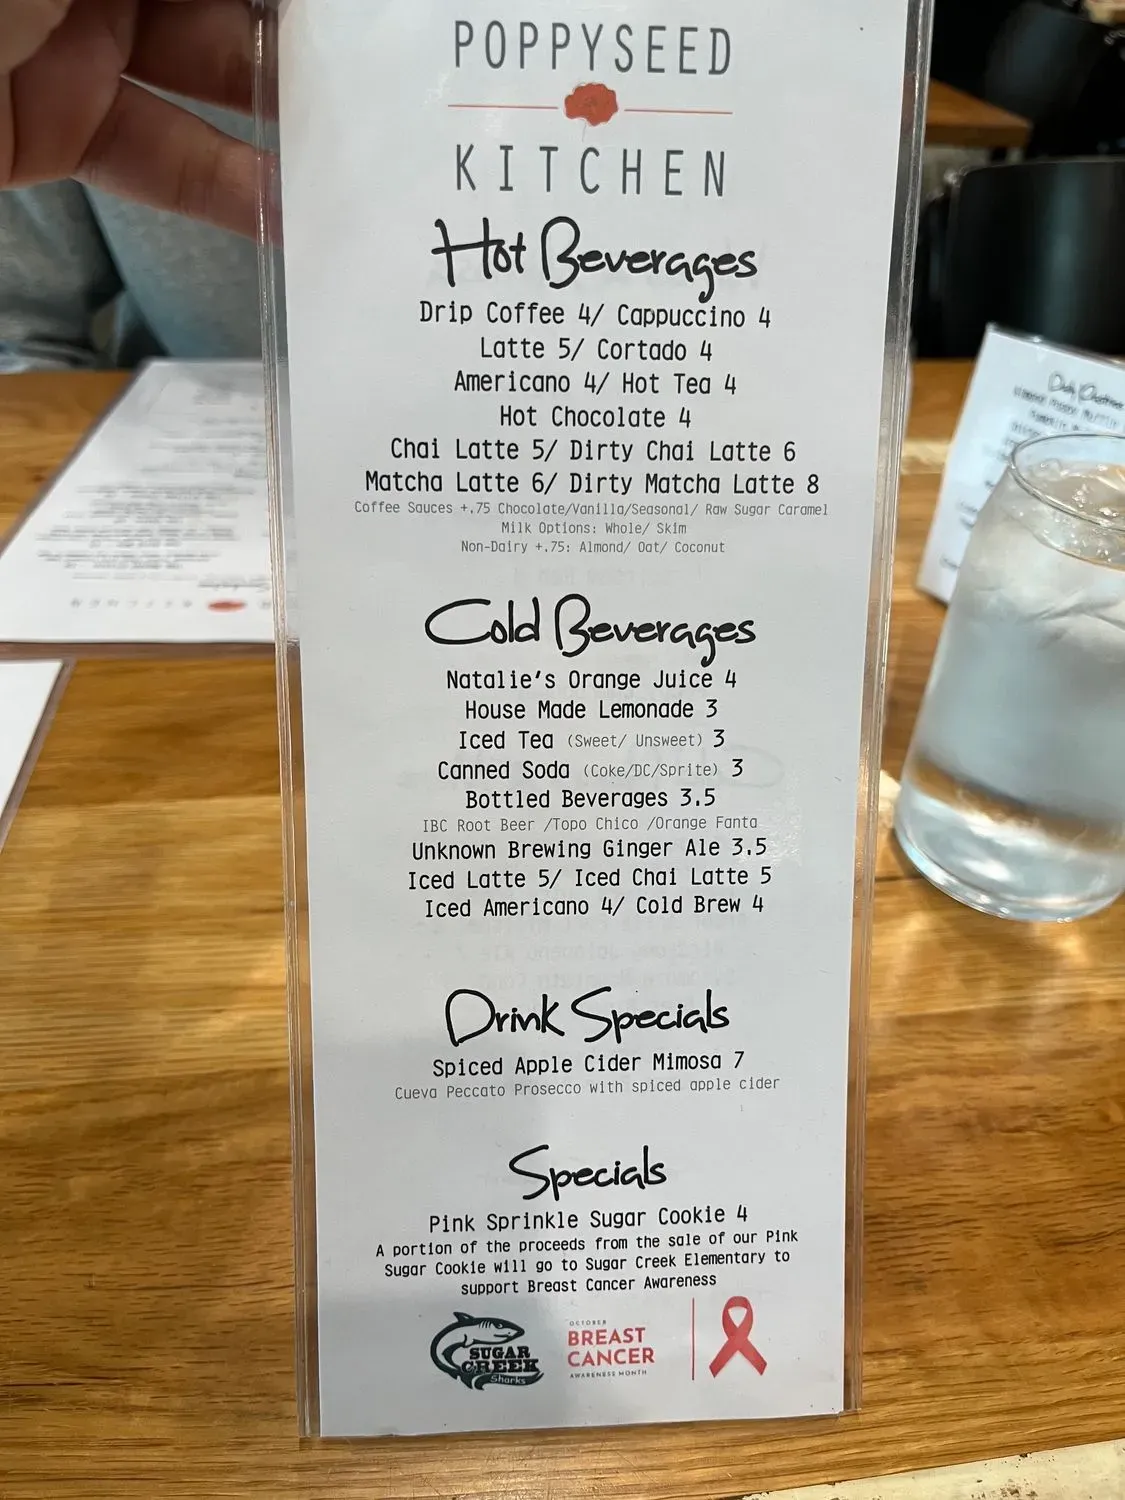 POPPYSEED
KITCHEN
Hot Beverages
Drip Coffee 4/ Cappuccino 4
Latte 5/ Cortado 4
Americano 4/ Hot Tea 4
Hot Chocolate 4
Chai Latte 5/ Dirty Chai Latte 6
Matcha Latte 6/ Dirty Matcha Latte 8
Coffee Sauces +.75 Chocolate/Vanilla/Seasonal/ Raw Sugar Caramel
Milk Options: Whole/ Skim
Non-Dairy +.75: Almond/ Oat/ Coconut
Cold Beverages
Natalie's Orange Juice 4
House Made Lemonade 3
Iced Tea (Sweet/ Unsweet) 3
Canned Soda (Coke/DC/Sprite) 3
Bottled Beverages 3.5
IBC Root Beer /Topo Chico /Orange Fanta
Unknown Brewing Ginger Ale 3.5
Iced Latte 5/ Iced Chai Latte 5
Iced Americano 4/ Cold Brew 4
Drink Specials
Spiced Apple Cider Mimosa 7
Cueva Peccato Prosecco with spiced apple cider
Specials
Pink Sprinkle Sugar Cookie 4
A portion of the proceeds from the sale of our Pink
Sugar Cookie will go to Sugar Creek Elementary to
support Breast Cancer Awareness
SUGAR
CREEK
Sharks
OCTOBER
BREAST
CANCER
AWARENESS MONTH